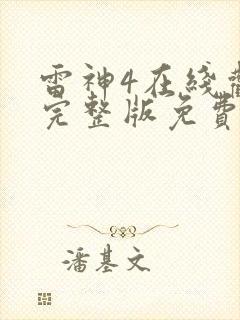 雷神4在线
完整版免费
潘基文